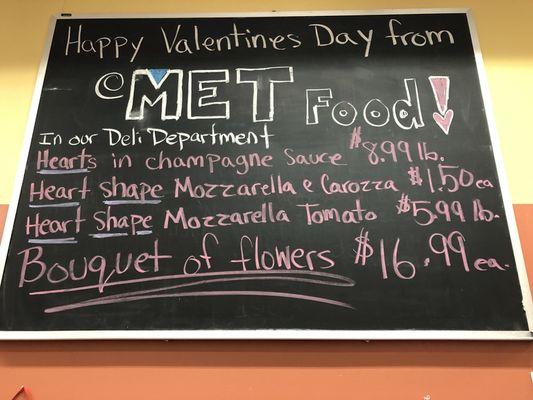 Happy Valentines Day from
© MET Food!
In our Deli Department
Hearts in champagne Sauce $8.99 lb.
Heart shape Mozzarella e Carozza $1.50 ea
Heart Shape Mozzarella Tomato $5.99 lb.
Bouquet of flowers $16.99 ea.